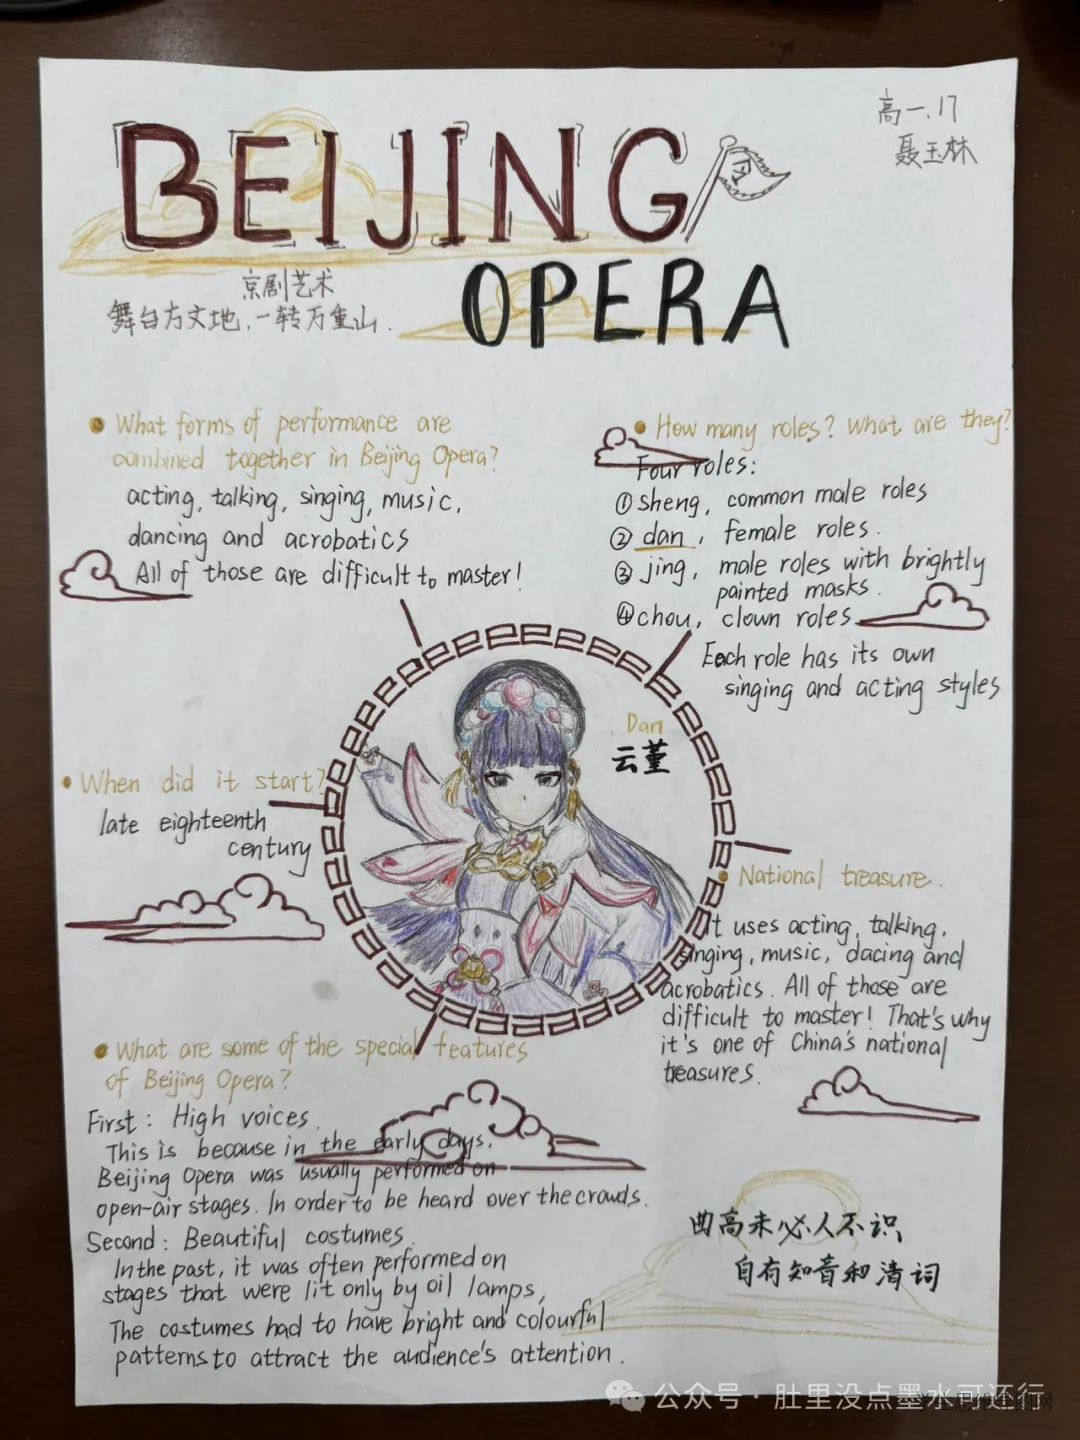 高一.17
聂玉林
BEIJING
京
OPERA
京剧艺术
舞台方丈地,一转万重山.
• What forms of performance are
combined together in Beijing Opera?
acting, talking, singing, music,
dancing and acrobatics
All of those are difficult to master!
• How many roles? What are they?
Four roles:
① Sheng, common male roles
② dan, female roles.
③ jing, male roles with brightly
painted masks.
④ chou, clown roles
Each role has its own
singing and acting styles
Dan
云堇
• When did it start?
late eighteenth
century
• National treasure.
It uses acting, talking,
singing, music, dacing and
acrobatics. All of those are
difficult to master! That's why
it's one of China's national
treasures.
• What are some of the special features
of Beijing Opera?
First: High voices.
This is because in the early days,
Beijing Opera was usually performed on
open-air stages. In order to be heard over the crowds.
Second: Beautiful costumes.
In the past, it was often performed on
stages that were lit only by oil lamps,
The costumes had to have bright and colourful
patterns to attract the audience's attention.
曲高未必人不识
自有知音和清词
公众号·肚里没点墨水可还行